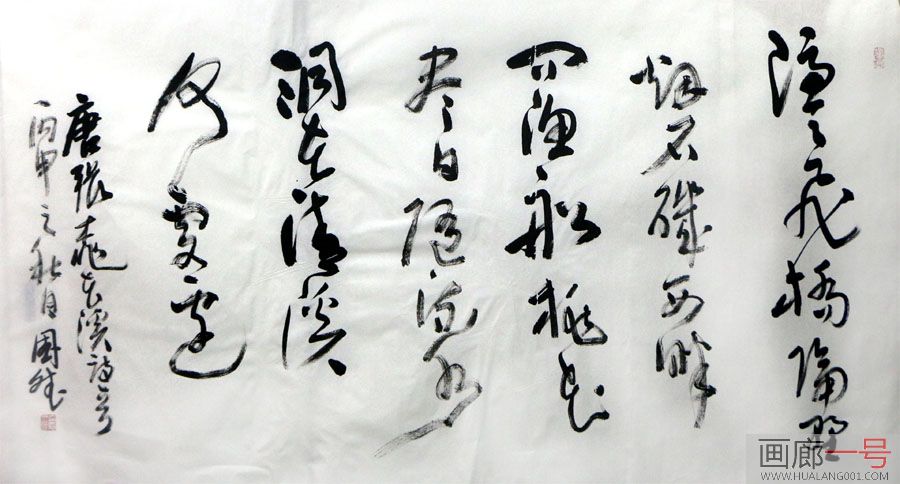 隐隐飛橋隔野
烟石磯西畔
问漁船桃花
尽日隨流水
洞在清溪
何處边
唐張桃花溪詩
丙申之秋月國
画廊一号
WWW.HUALANG001.COM